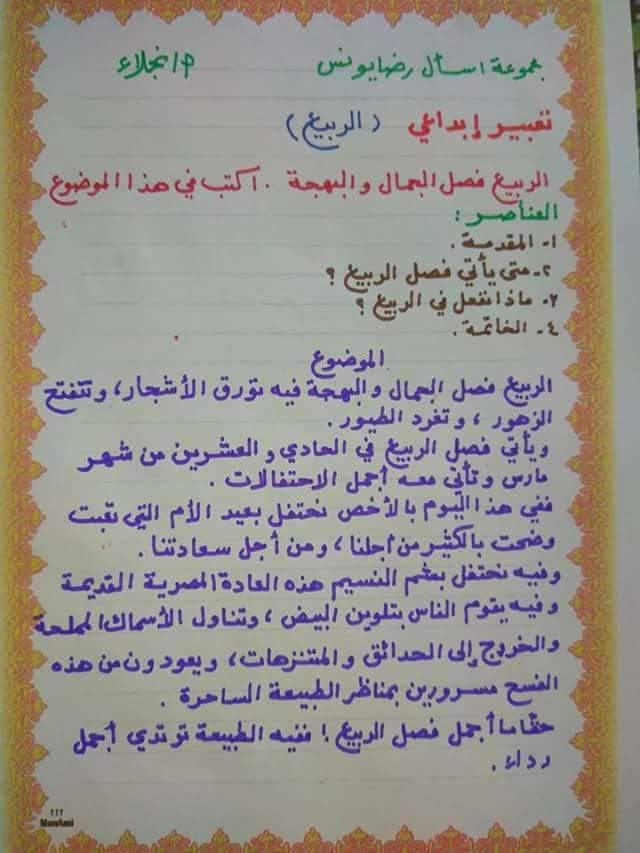 مجموعة اسأل رضا يونس م/ نجلاء
تعبير إبداعي (الربيع)
الربيع فصل الجمال والبهجة . اكتب في هذا الموضوع
العناصر :
١- المقدمة .
٢- متى يأتي فصل الربيع ؟
٣- ماذا نفعل في الربيع ؟
٤- الخاتمة .
الموضوع
الربيع فصل الجمال والبهجة فيه تورق الأشجار ، وتتفتح
الزهور ، وتغرد الطيور .
ويأتي فصل الربيع في الحادي والعشرين من شهر
مارس وتأتي معه أجمل الاحتفالات .
ففي هذا اليوم بالأخص نحتفل بعيد الأم التي تعبت
وضحت بالكثير من أجلنا ، ومن أجل سعادتنا .
وفيه نحتفل بشم النسيم هذه العادة المصرية القديمة
وفيه يقوم الناس بتلوين البيض ، وتناول الأسماك المملحة
والخروج إلى الحدائق والمتنزهات ، ويعودون من هذه
الفسح مسرورين بمناظر الطبيعة الساحرة .
حقًا ما أجمل فصل الربيع ! ففيه الطبيعة ترتدي أجمل
رداء .
٢٢٢
MonAmi